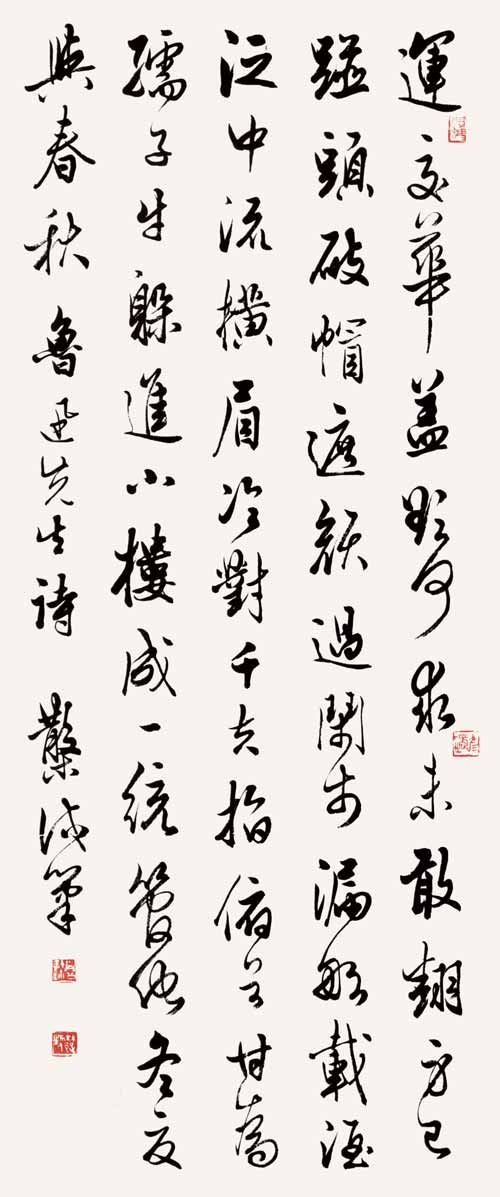 運交華蓋欲何求未敢翻身已
踫頭破帽遮顏過鬧市漏船載酒
泛中流橫眉冷對千夫指俯首甘為
孺子牛躲進小樓成一統管他冬夏
與春秋 魯迅先生詩 筆